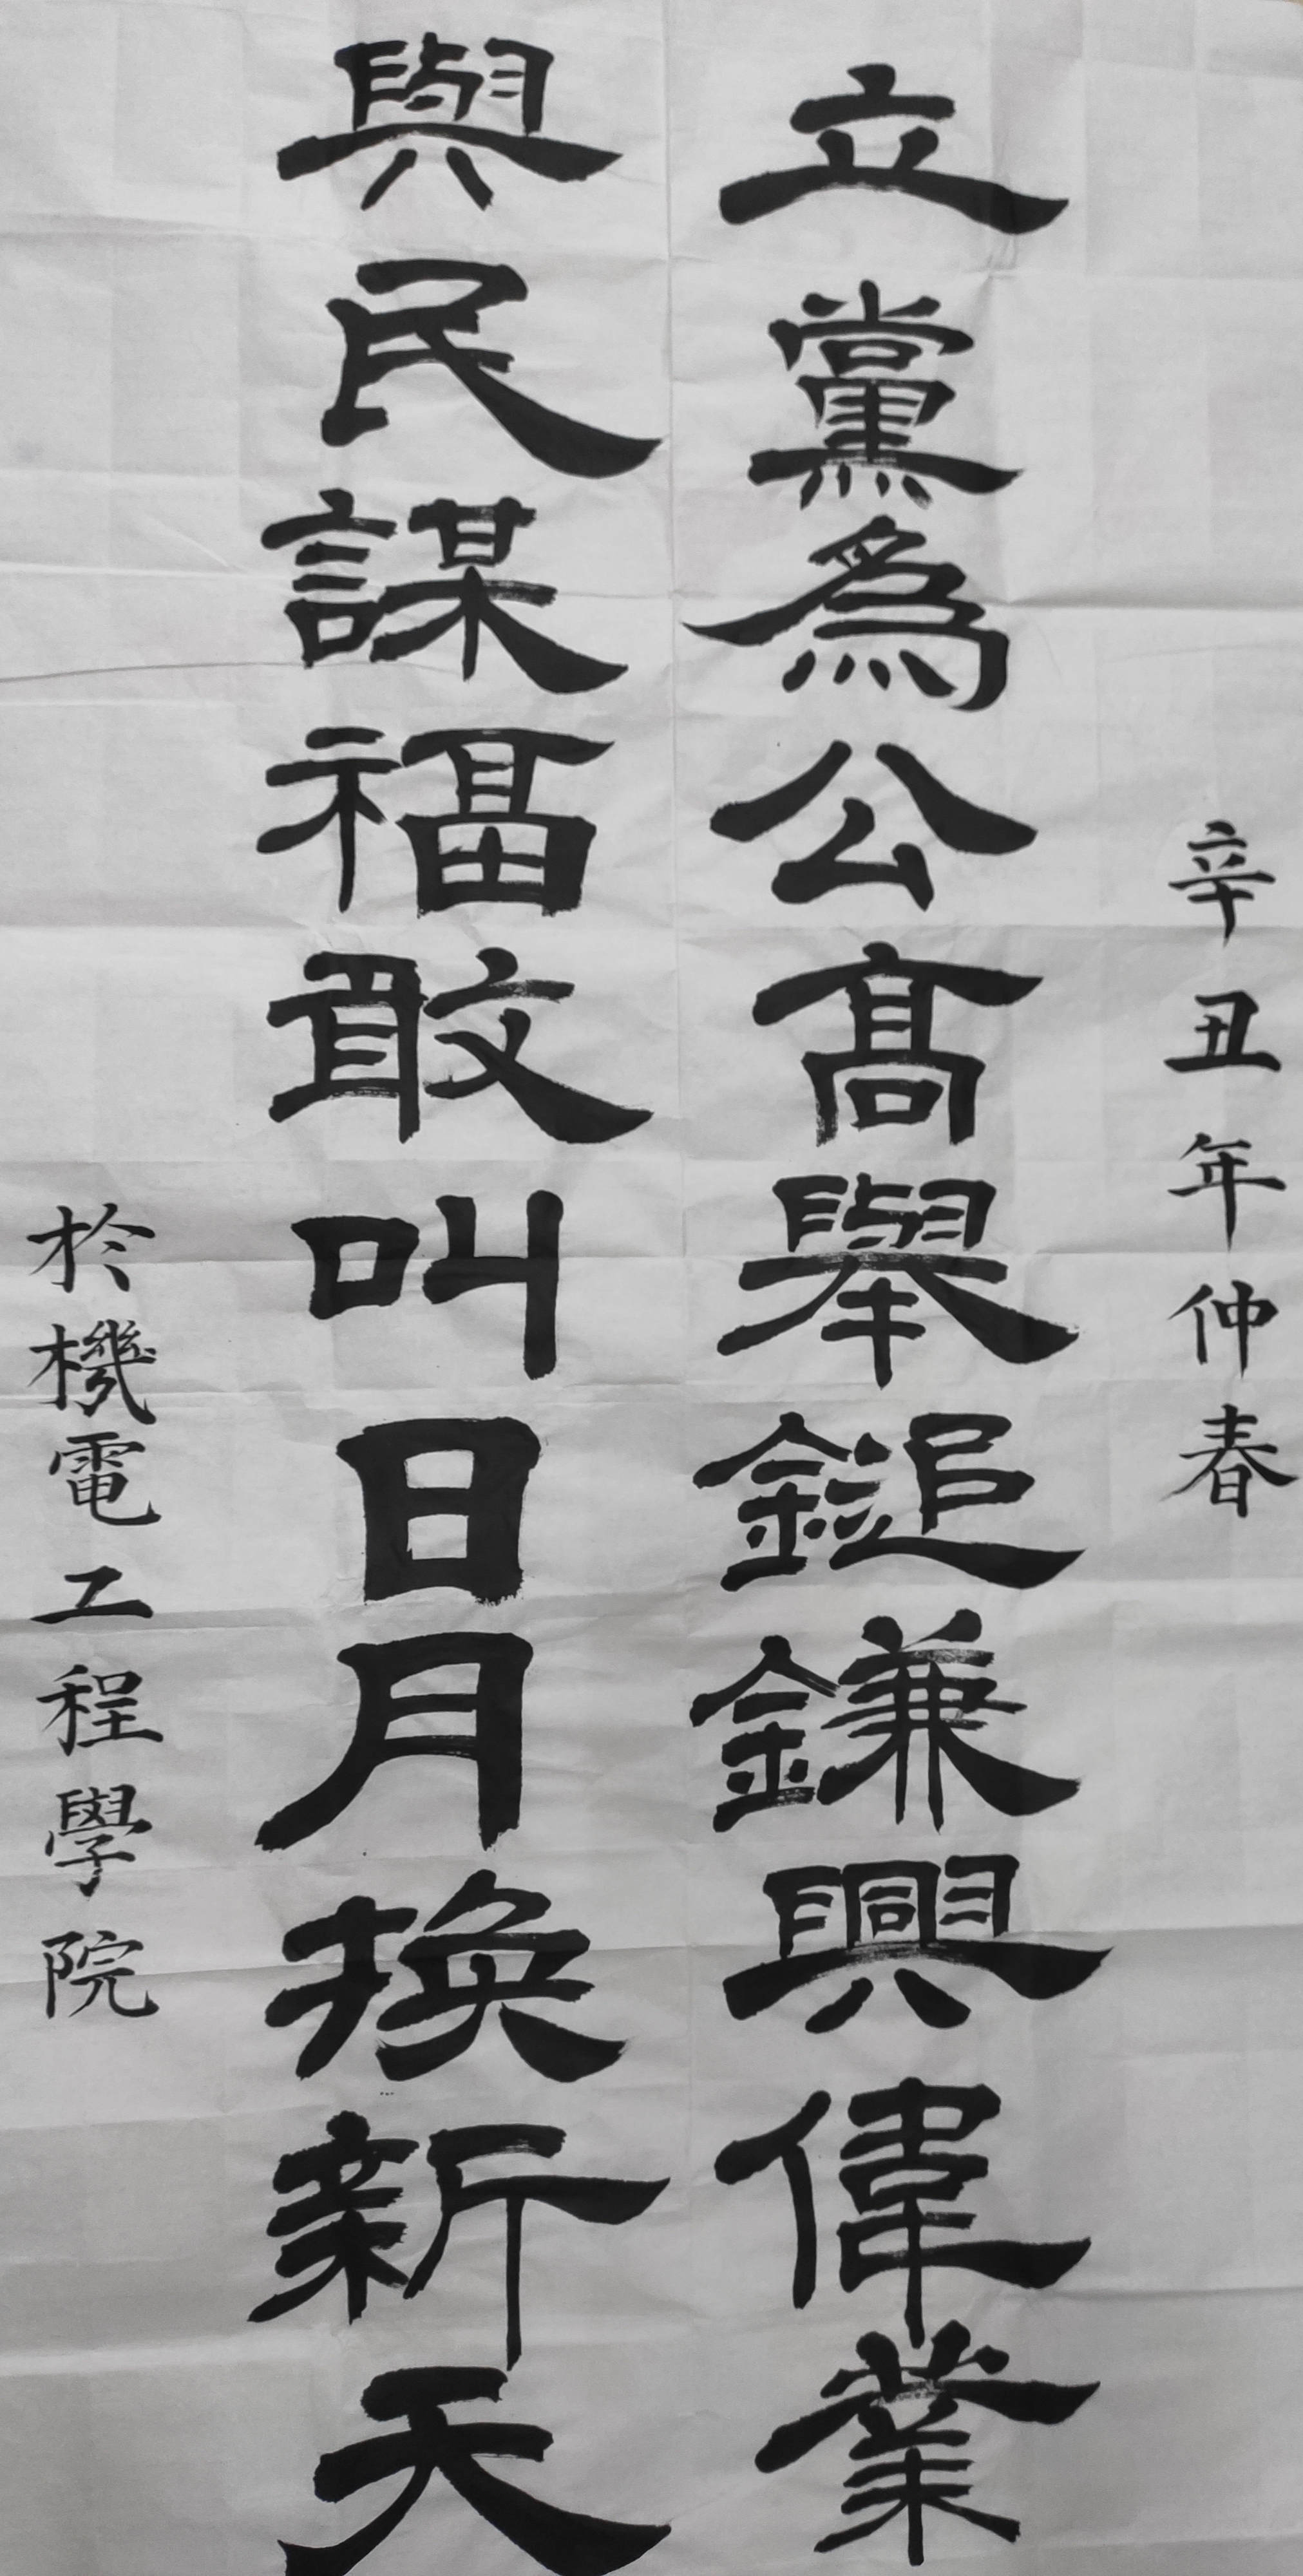 辛丑年仲春
立黨為公高舉鎚鐮興偉業
與民謀福敢叫日月換新天
於機電工程學院